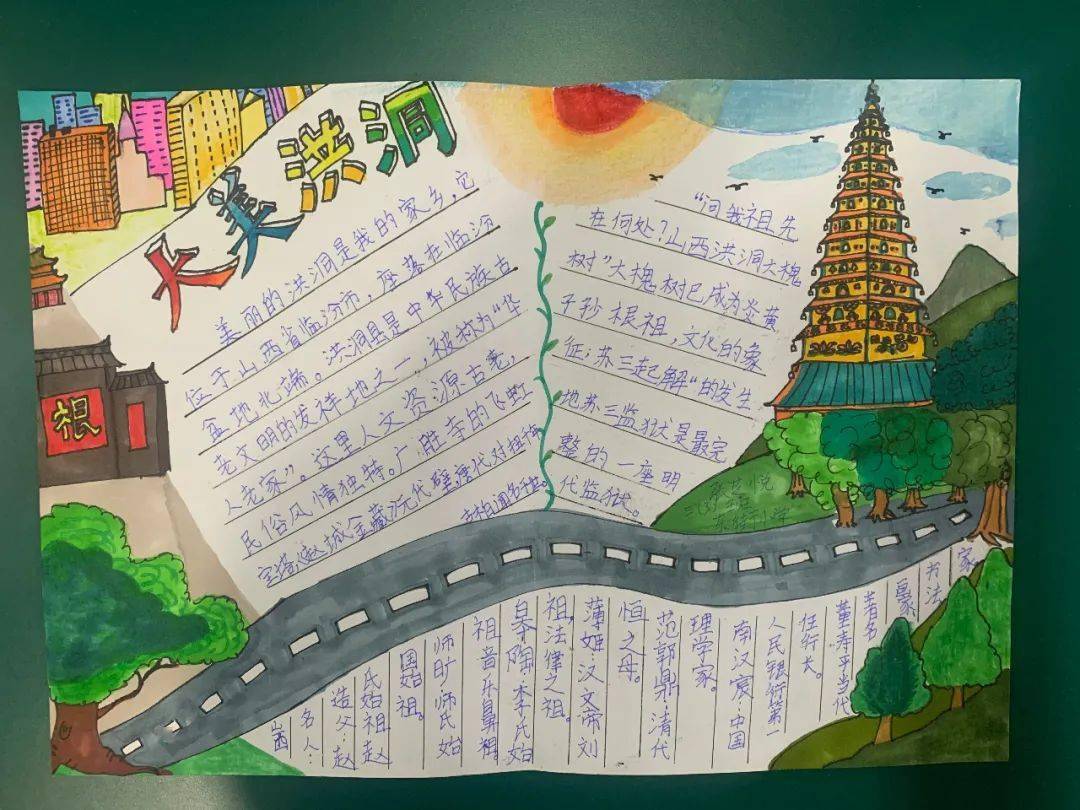 大美洪洞
美丽的洪洞是我的家乡,它
位于山西省临汾市,座落在临汾
盆地北端。洪洞县是中华民族古
老文明的发祥地之一,被称为“华
人老家”。这里人文资源古老,
民俗风情独特。广胜寺的飞虹
宝塔,赵城金藏,元代壁
“问我祖先
在何处?山西洪洞大槐
树”大槐树已成为炎黄
子孙根祖,文化的象
征;苏三起解“的发生
地苏三监狱是最完
整的一座明
代监狱。
根
名人:
造父:赵
氏始祖赵
国始祖。
师旷·师氏始
祖音乐鼻祖。
皋陶·李氏始
祖,法律之祖。
薄姬·汉文帝刘
恒之母。
范鄗鼎·清代
理学家。
南汉宸·中国
人民银行第一
任行长。
董寿平当代
著名
书法
家